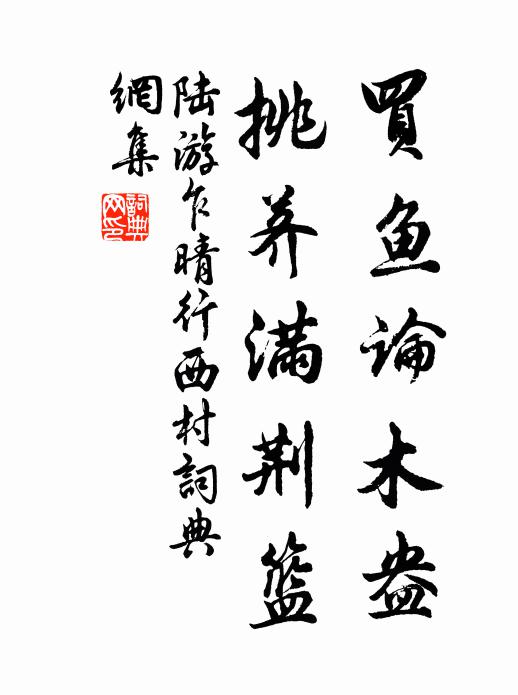 買魚論木盎
挑荠滿荆籃
陸游乍晴行西村詞典
網集
詞典网印